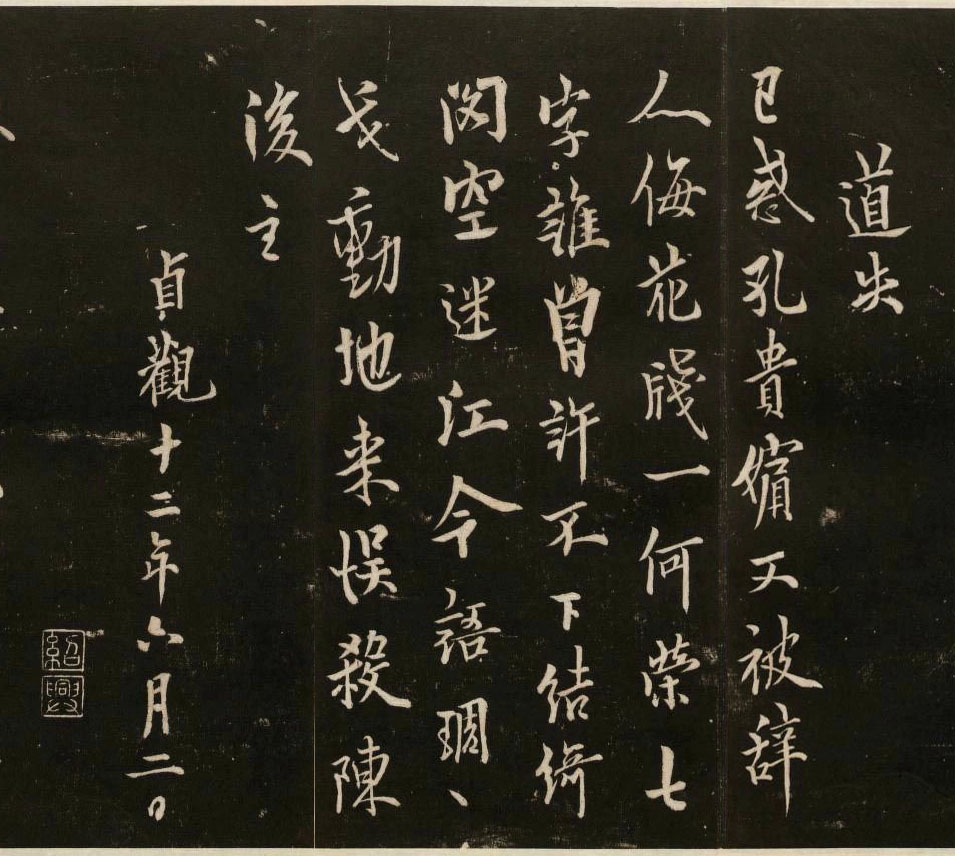 道失
已惑孔貴嬪又被辞
人侮花牋一何榮七
字誰曾許不下結綺
閣空迷江令語琱、
戈動地来誤殺陳
後主
貞觀十二年六月二日
紹興